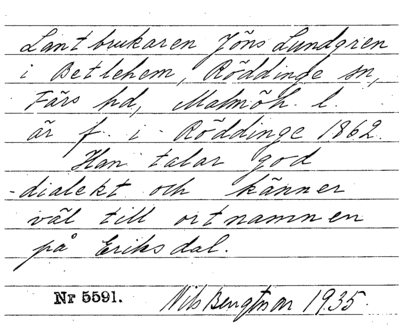 Lantbrukaren Jöns Lundgren
i Betlehem, Röddinge sn,
Färs hd, Malmöh. l.
är f. i Röddinge 1862.
Han talar god
dialekt och känner
väl till ortnamnen
på Eriksdal.
Nr 5591. Nils Bengtson 1935.